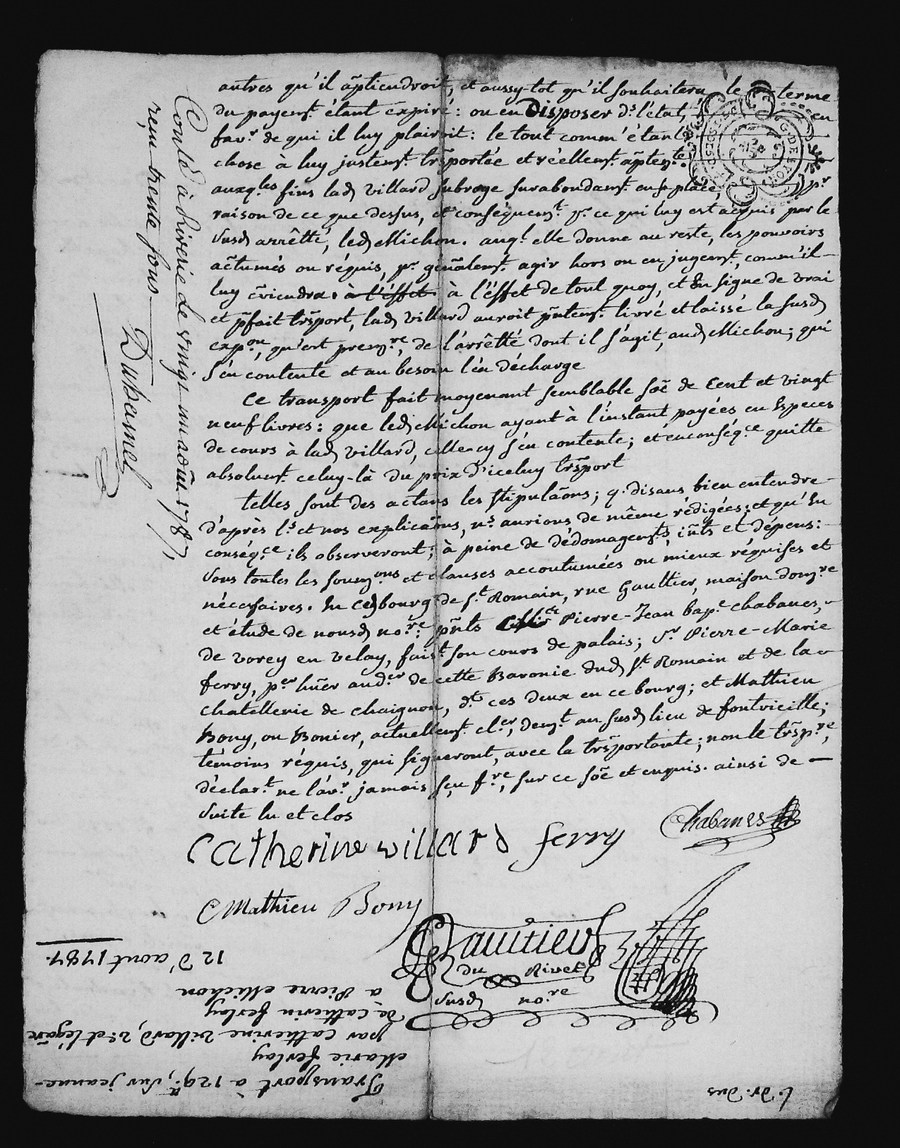 autres qu'il aptiendroit, et aussy-tot qu'il souhaitera le terme
du payemt. étant expiré: ou en Disposer ds. l'état, en
favr. de qui il luy plairoit: le tout comm'étant
chose à luy justemt. trãsportée et réellemt. apten.te
auxq.les fins lad. villard subroge surabondamt. en sa place, pr.
raison de ce que dessus, et conséquemt. pr. ce qui luy est acquis par le
susd. arrêtté, led. Michon. auql. elle donne au reste, les pouvoirs
actumés ou réquis, pr. gñalemt. agir hors ou en jugemt. comm'il-
luy cviendra: à l'éffet à l'éffet de tout quoy, et En signe de vrai
et pfait trãsport, lad. villard auroit pntemt. livré et laissé la susd.
exp.on, qu'est prem.re, de l'arrêtté dont il s'agit, aud. Michon; qui
s'en contente et au besoin l'en décharge
Ce transport fait moyenant semblable sõe de Cent et vingt
neuf livres: que led. Michon ayant à l'instant payées en Especes
de cours à lad. villard, celle-cy s'en contente; et en conséq.ce quitte
absolumt. celuy-là du prix d'iceluy trãsport
telles sont des actans les stipulãons; q. disans bien entendre
d'après ls. et nos explicaõns, ns. aurions de même rédigées; et qu'En
conseq.ce ils observeront; à peine de dédomagemts, intts et dépens:
sous toutes les soumõns et clauses accoutumées ou mieux réquises et
nécessaires. En ced. bourg de St. Romain, rue Gaultier, maison dom.re
et étude de nousd. no.re: pñts Pierre-Jean bap.e chabanes,
de vorey en velay, faist. son cours de palais; Sr. Pierre-Marie
ferry, p.er huier aud.er de cette Baronie dud. St. Romain et de la
chatellerie de chaignon, dt. ces deux en ce bourg; et Mathieu
Bony, ou Bonier, actuellemt. cl.er, demt. au susd. lieu de fontvieille;
témoins réquis, qui signeront, avec la trãsportante; non le trãsp.re,
déclart. ne l'avr. jamais sçu f.re, sur ce sõé et enquis. ainsi de —
suite lu et clos
Catherine villard ferry Chabanes
Mathieu Bony
Gaultier
du Rivet
susd. no.re
Conlé à riverie le vingt un aoust 1787,
reçu trente sous
Duhamel
Transport à 129ᵗᵗ, sur jeanne-
Marie ferlay
par Catherine villard, ve. et légãre
de Catherin ferlay
à Pierre Michon
12 d'aout 1787.